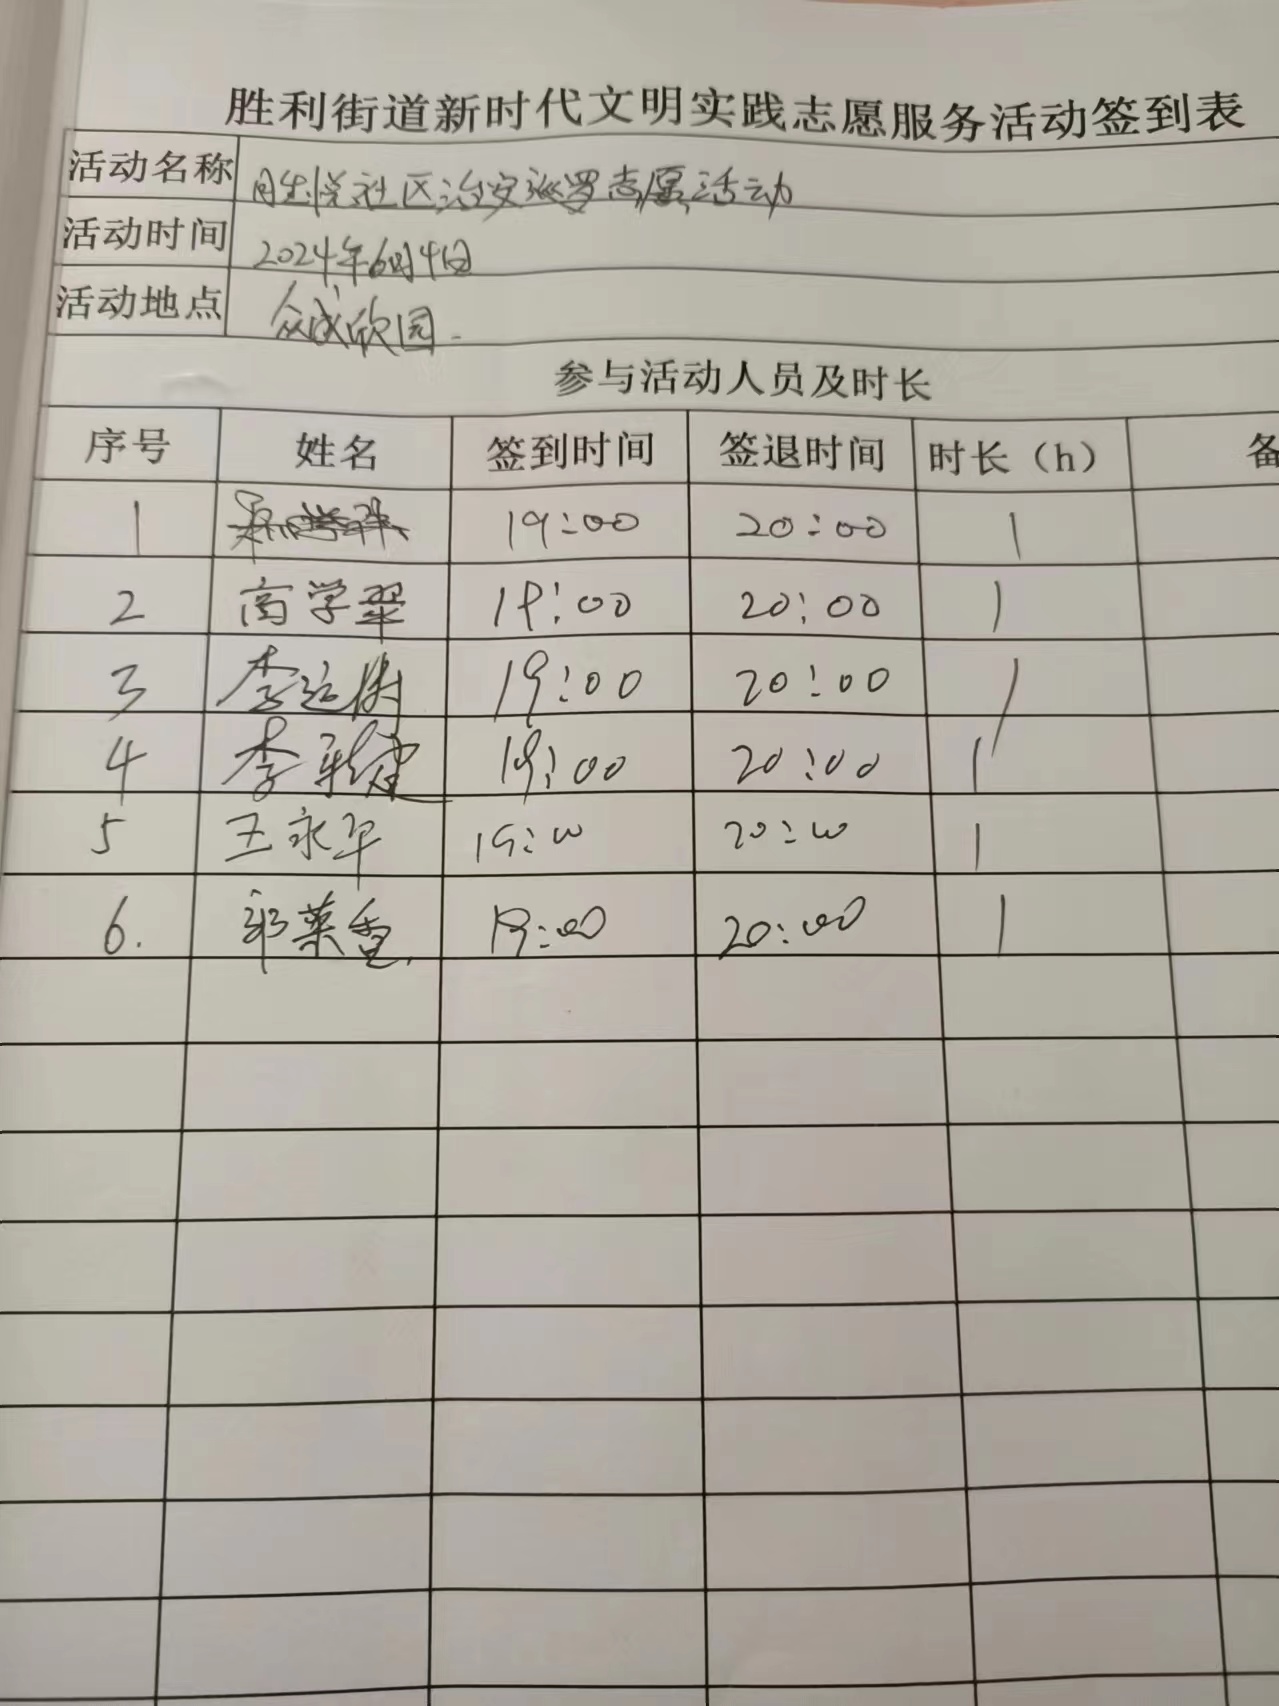 胜利街道新时代文明实践志愿服务活动签到表
活动名称 社区治安巡罗志愿活动
活动时间 2024年6月4日
活动地点 众成欣园
参与活动人员及时长
序号 姓名 签到时间 签退时间 时长（h） 备
1 19:00 20:00 1
2 商学翠 19:00 20:00 1
3 李运树 19:00 20:00 1
4 李 19:00 20:00 1
5 王永华 19:00 20:00 1
6. 郭荣香 19:00 20:00 1